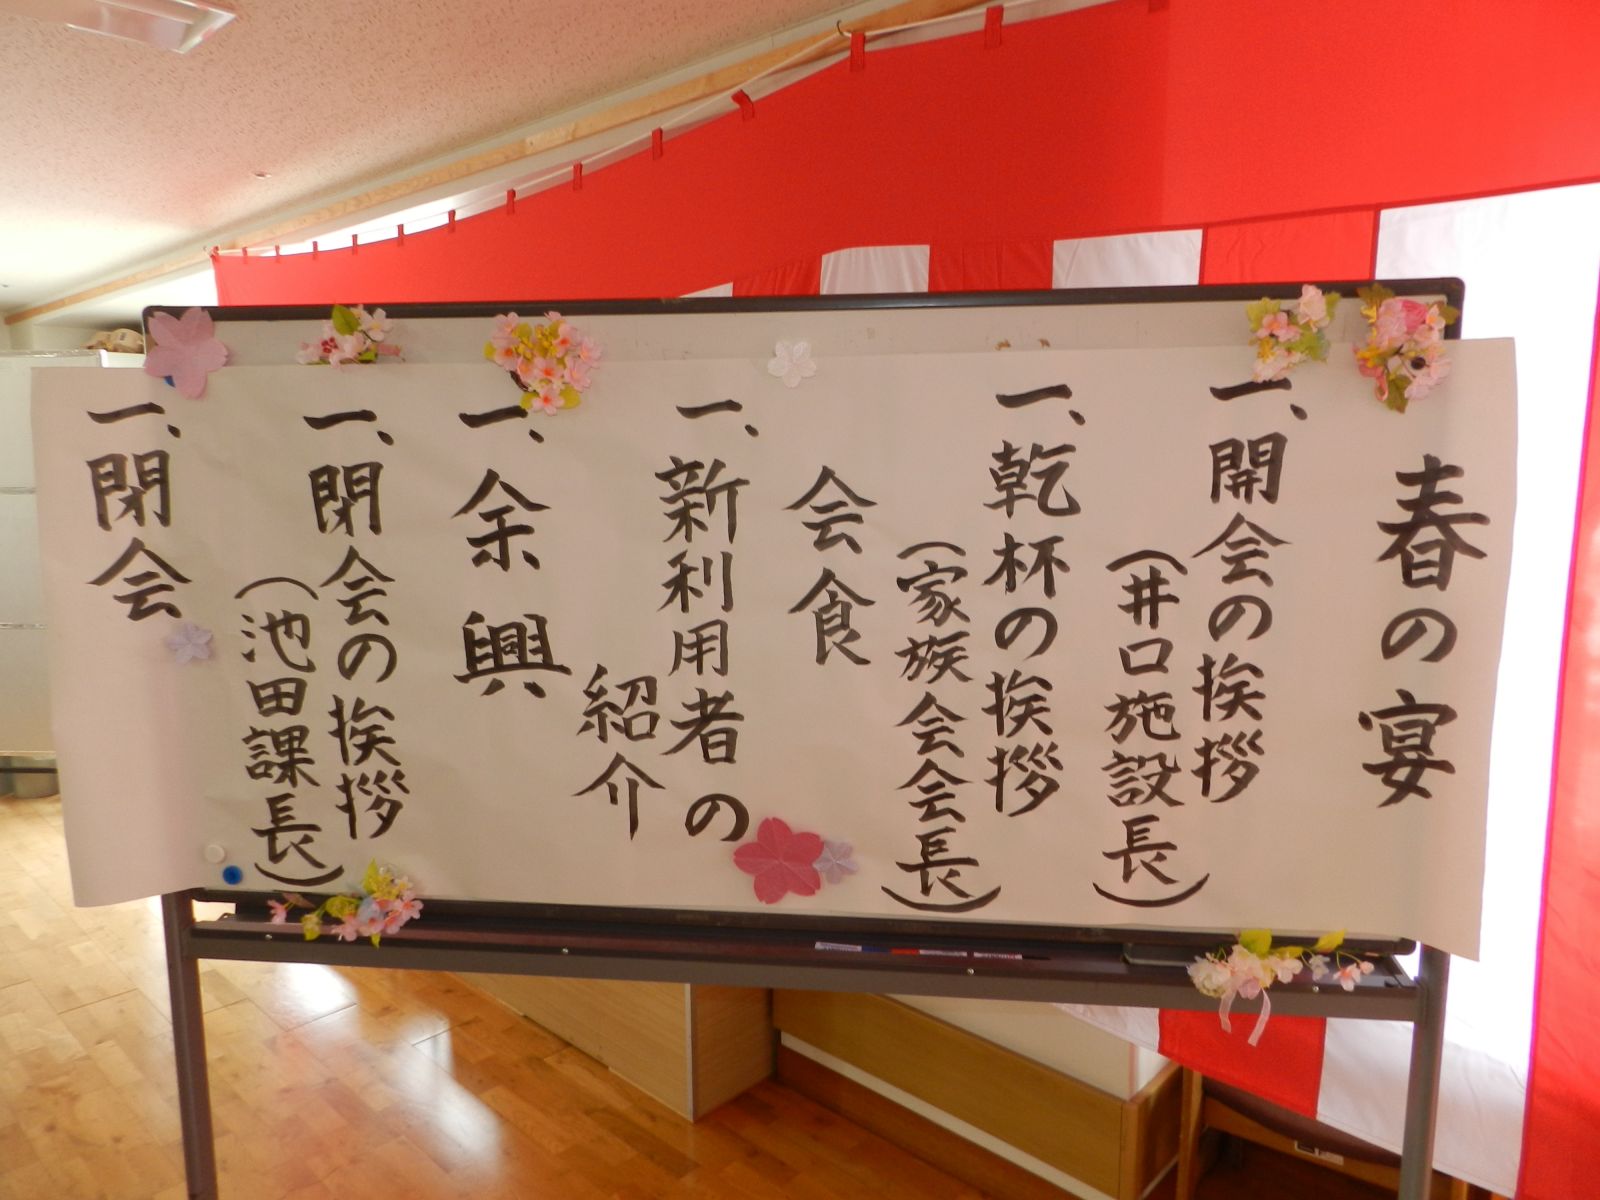 春の宴
一、開会の挨拶
(井口施設長)
一、乾杯の挨拶
(家族会会長)
会食
一、新利用者の
紹介
一、余興
一、閉会の挨拶
(池田課長)
一、閉会